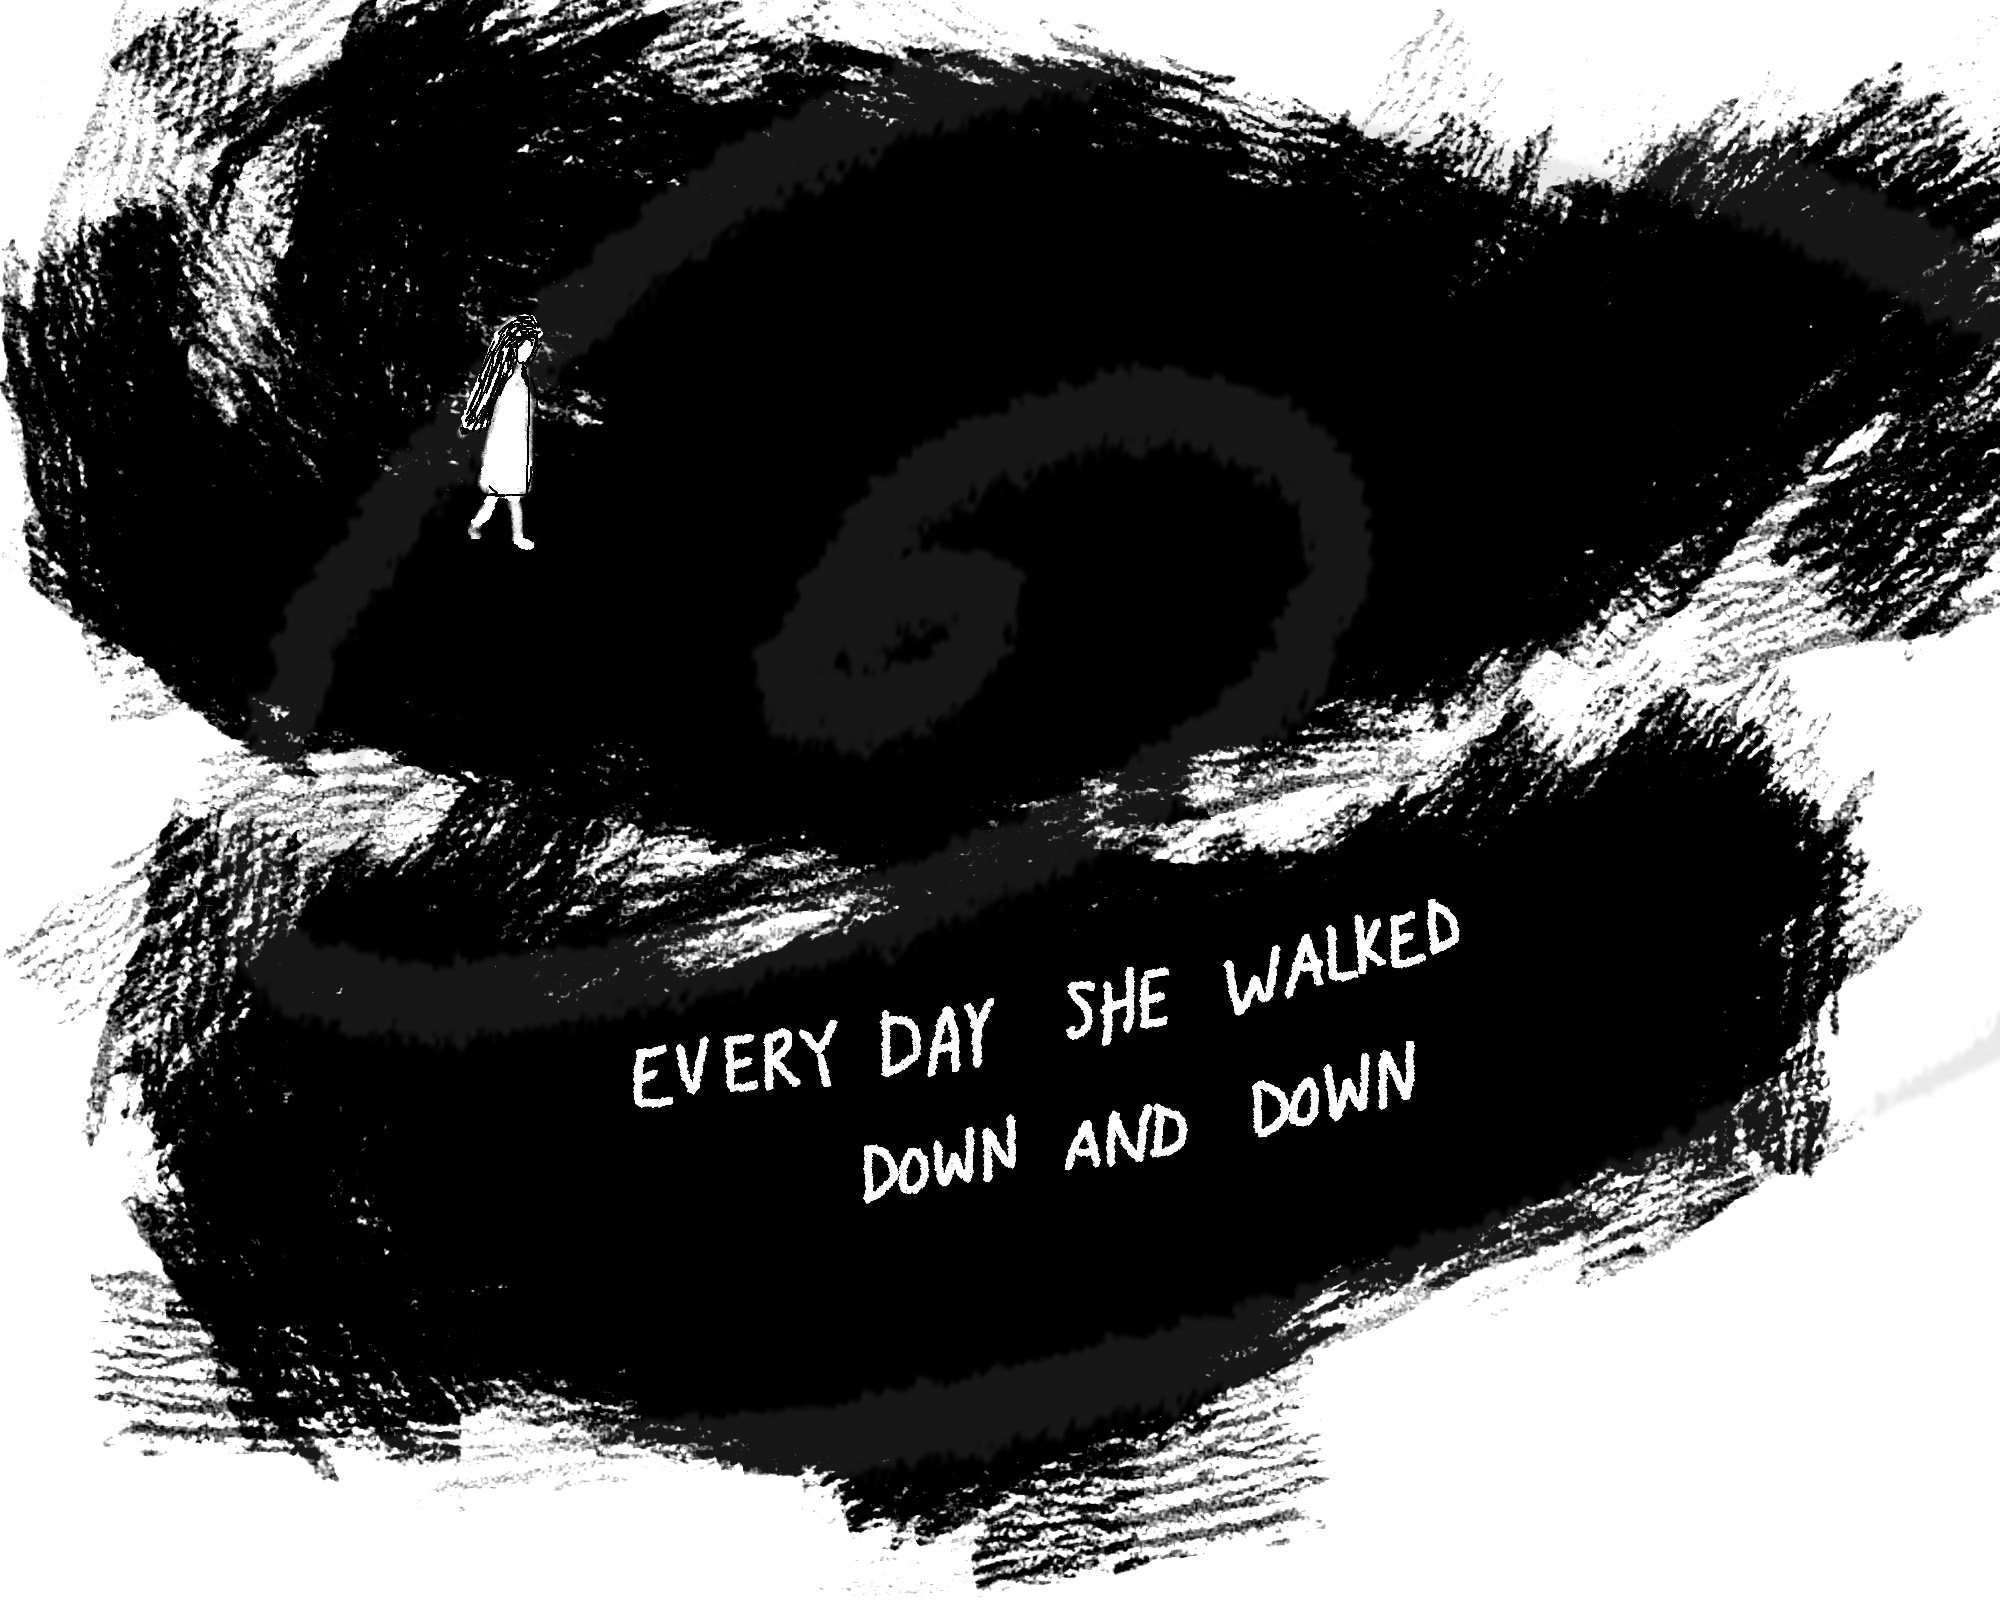 EVERY DAY SHE WALKED
DOWN AND DOWN